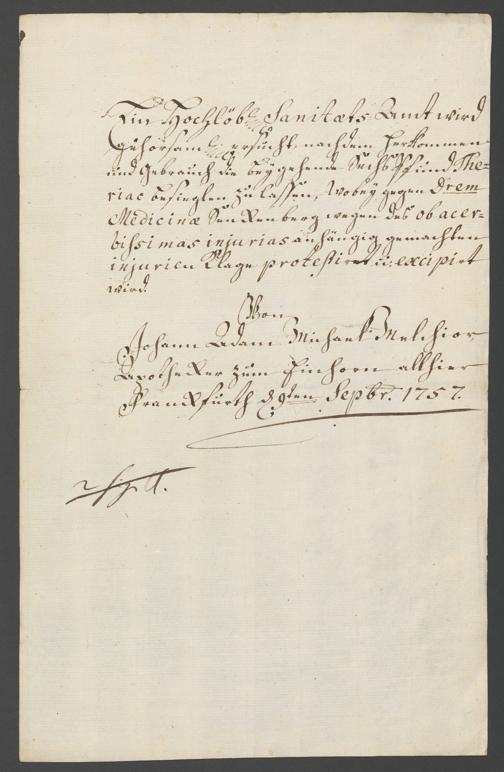 Ein Hochlöbl. Sanitæts Amt wird
gehorsaml. ersucht, nachdem Herkommen
und Gebrauch die beÿgehende Sechß Pfund The-
riac besieglen zu lassen, Wobeÿ gegen Drem
Medicinæ Senckenberg wegen des ob acer-
bissimas injurias anhängig gemachten
injurien Klage protestiret u: excipirt
wird.
Von
Johann Adam Michael Melchior
Apothecker zum Einhorn allhier
Franckfurth d 9ten Sepbr. 1757.